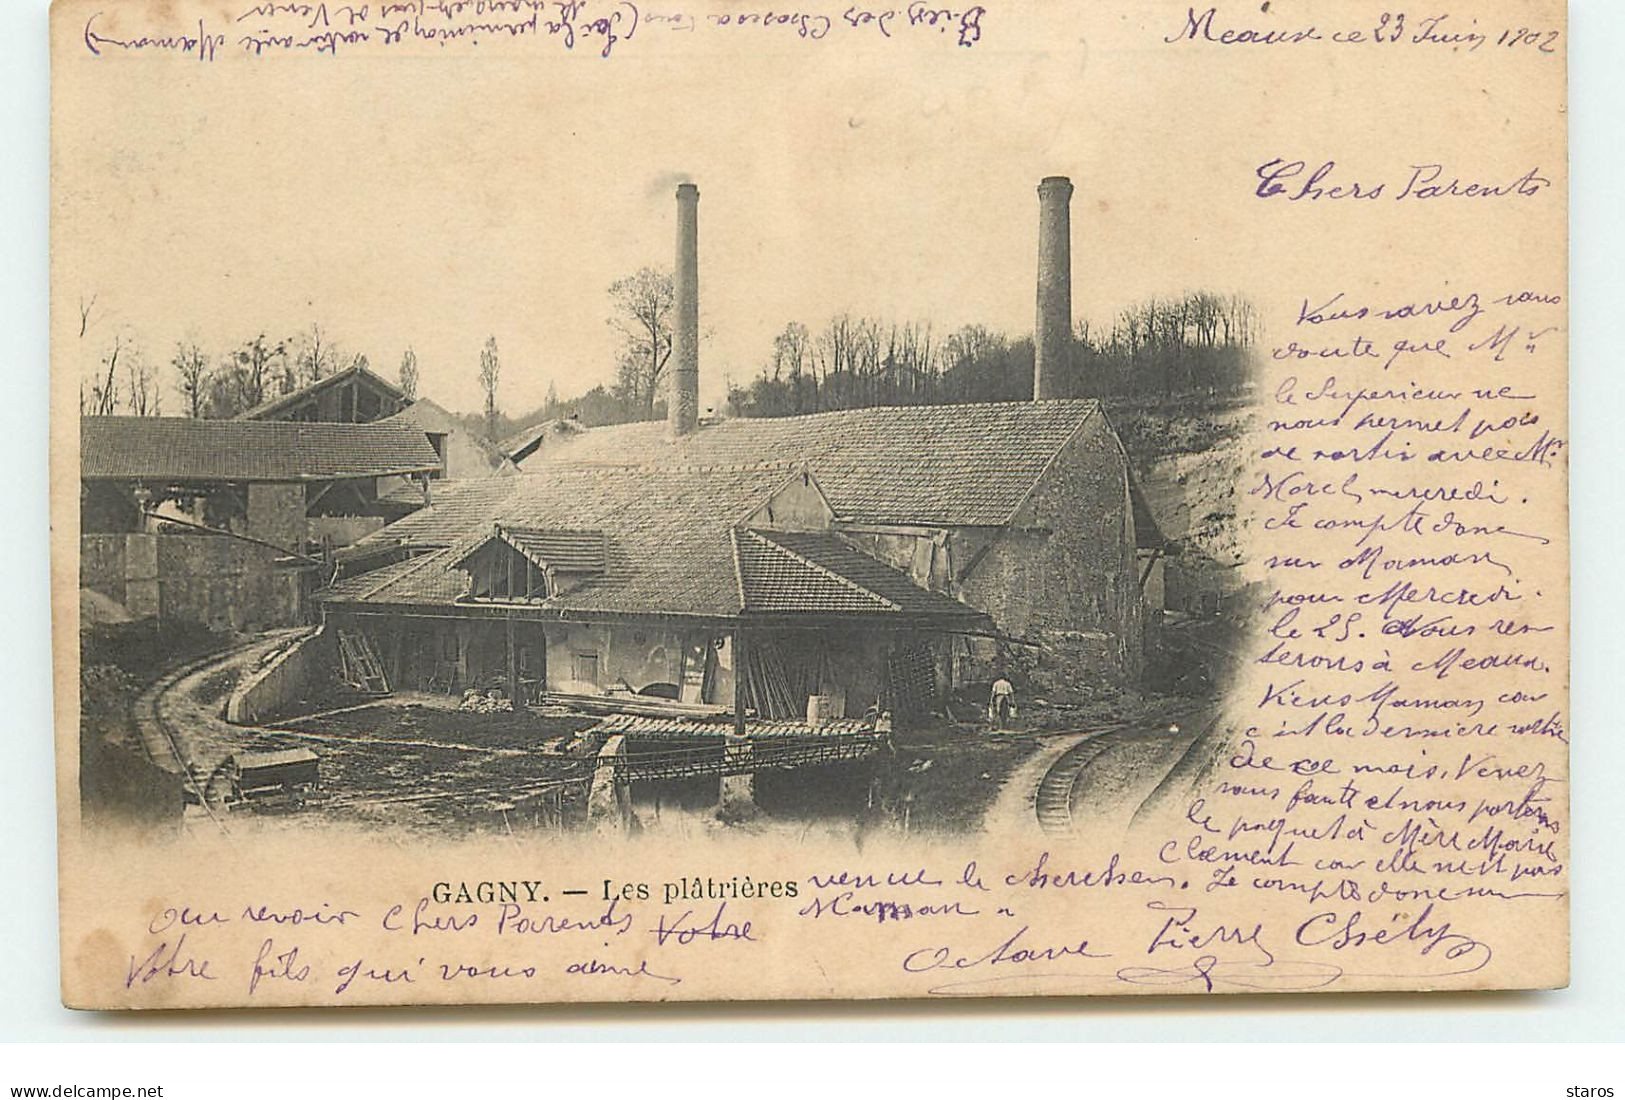 Meaux ce 23 Juin 1902
Chers Parents
Vous savez sans
doute que Mr
le Superieur ne
nous permet pas
de sortir avec Mr
Morel, mercredi.
Je compte donc
sur Maman
pour Mercredi.
le 25. Nous res
terons à Meaux.
Viens Maman car
c'est la dernière sortie
de ce mois. Venez
sans faute et nous porterons
le paquet à Mère Marie
Clement car elle n'est pas
venue le chercher. Je compte donc sur
Maman.
GAGNY. — Les plâtrières
Au revoir Chers Parents Votre
Votre fils qui vous aime
Octave Pierre Chély
Bien des Choses a tous (J'ai la permission de sortir avec Maman)
Ne manquez pas de Venir
delcampe.net
staros